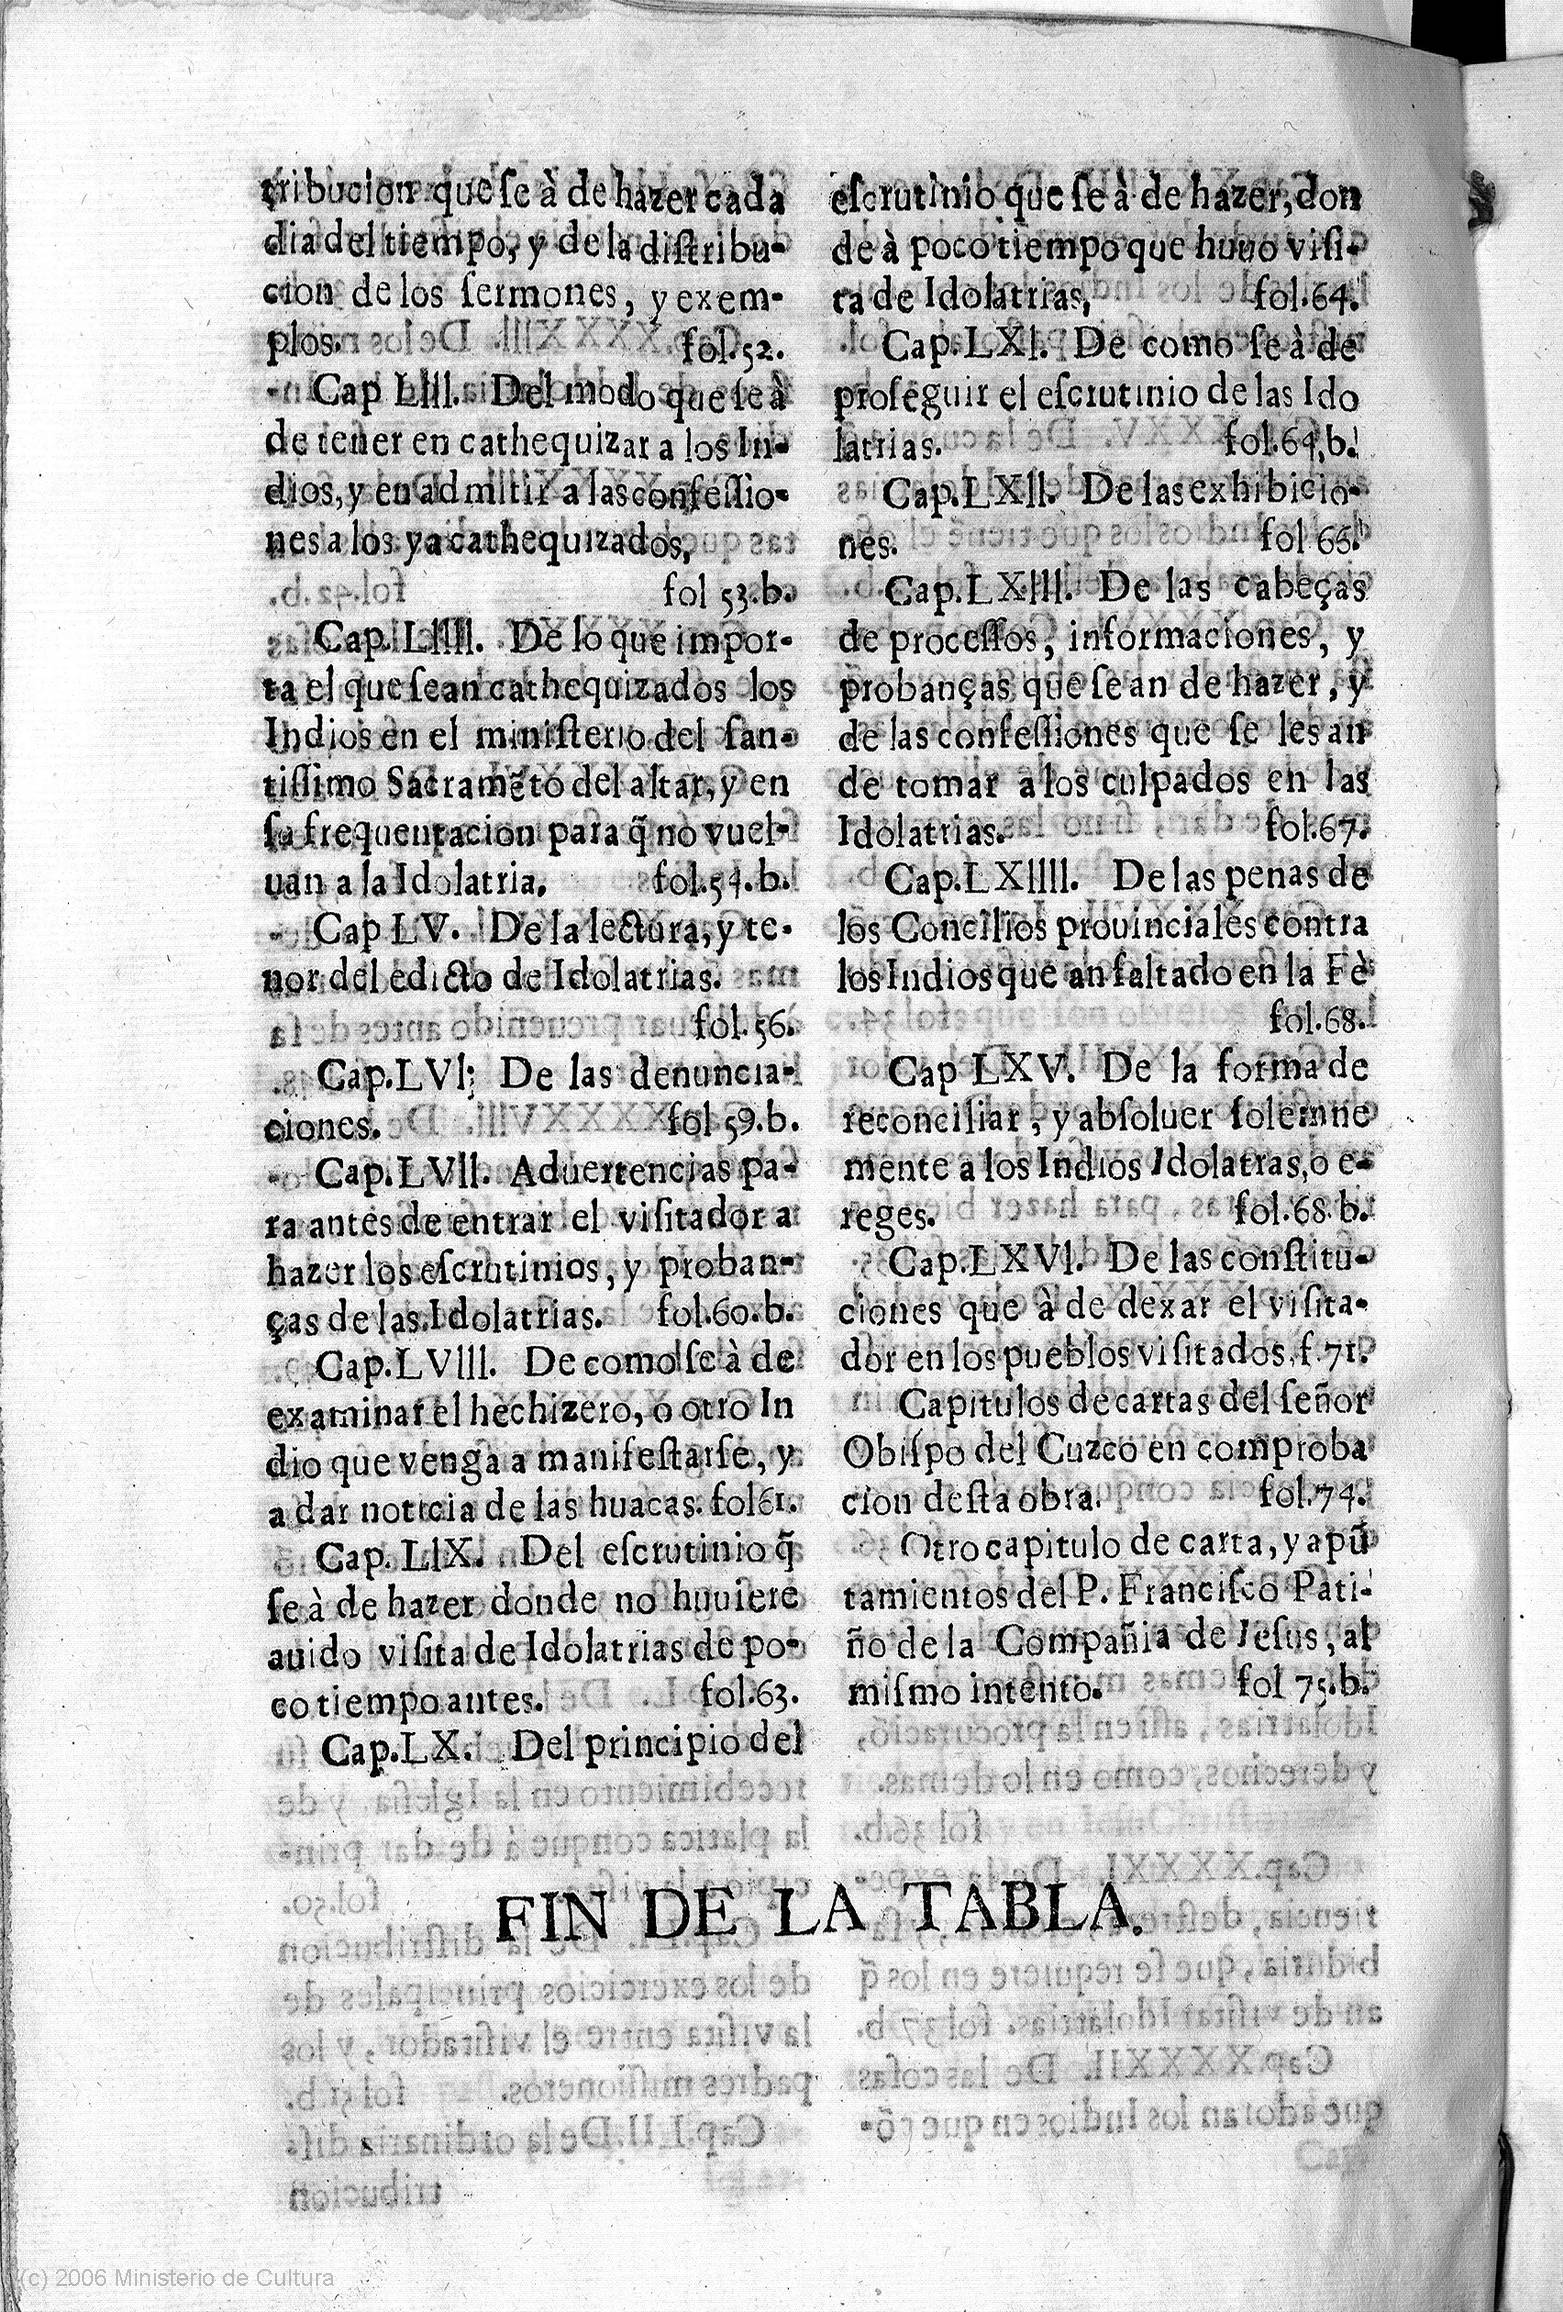 tribucion que ſe à de hazer cada
dia del tiempo, y de la diſtribu-
cion de los ſermones, y exem-
plos. fol.52.
Cap LIII. Del modo que ſe à
de tener en cathequizar a los In-
dios, y en admitir a las confeſſio-
nes a los ya cathequizados,
fol 53.b.
Cap. LIIII. De lo que impor-
ta el que ſean cathequizados los
Indios en el miniſterio del ſan-
tiſſimo Sacramẽto del altar, y en
ſu frequentacion para q̃ no vuel-
uan a la Idolatria. fol.54.b.
Cap LV. De la lectura, y te-
nor del edicto de Idolatrias.
fol.56.
Cap.LVI; De las denuncia-
ciones. fol 59.b.
Cap.LVII. Aduertencias pa-
ra antes de entrar el viſitador a
hazer los eſcrutinios, y proban-
ças de las Idolatrias. fol.60.b.
Cap.LVIII. De como ſe à de
examinar el hechizero, o otro In
dio que venga a manifeſtarſe, y
a dar noticia de las huacas. fol61.
Cap. LIX. Del eſcrutinio q̃
ſe à de hazer donde no huuiere
auido viſita de Idolatrias de po-
co tiempo antes. fol.63.
Cap.LX. Del principio del
eſcrutinio que ſe à de hazer, don
de à poco tiempo que huuo viſi-
ta de Idolatrias, fol.64.
Cap.LXI. De como ſe à de
proſeguir el eſcrutinio de las Ido
latrias. fol.64,b.
Cap.LXII. De las exhibicio-
nes. fol 66.
Cap.LXIII. De las cabeças
de proceſſos, informaciones, y
probanças que ſe an de hazer, y
de las confeſſiones que ſe les an
de tomar a los culpados en las
Idolatrias. fol.67.
Cap.LXIIII. De las penas de
los Concilios prouinciales contra
los Indios que an faltado en la Fè
fol.68.
Cap LXV. De la forma de
reconciliar, y abſoluer ſolemne
mente a los Indios Idolatras, o e-
reges. fol.68.b.
Cap.LXVI. De las conſtitu-
ciones que à de dexar el viſita-
dor en los pueblos viſitados. f.71.
Capitulos de cartas del ſeñor
Obiſpo del Cuzco en comproba
cion deſta obra. fol.74.
Otro capitulo de carta, y apũ
tamientos del P. Franciſco Pati-
ño de la Compañia de Ieſus, al
miſmo intento. fol 75.b.
FIN DE LA TABLA.
(c) 2006 Ministerio de Cultura